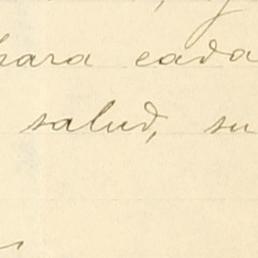 para cada
salud, su